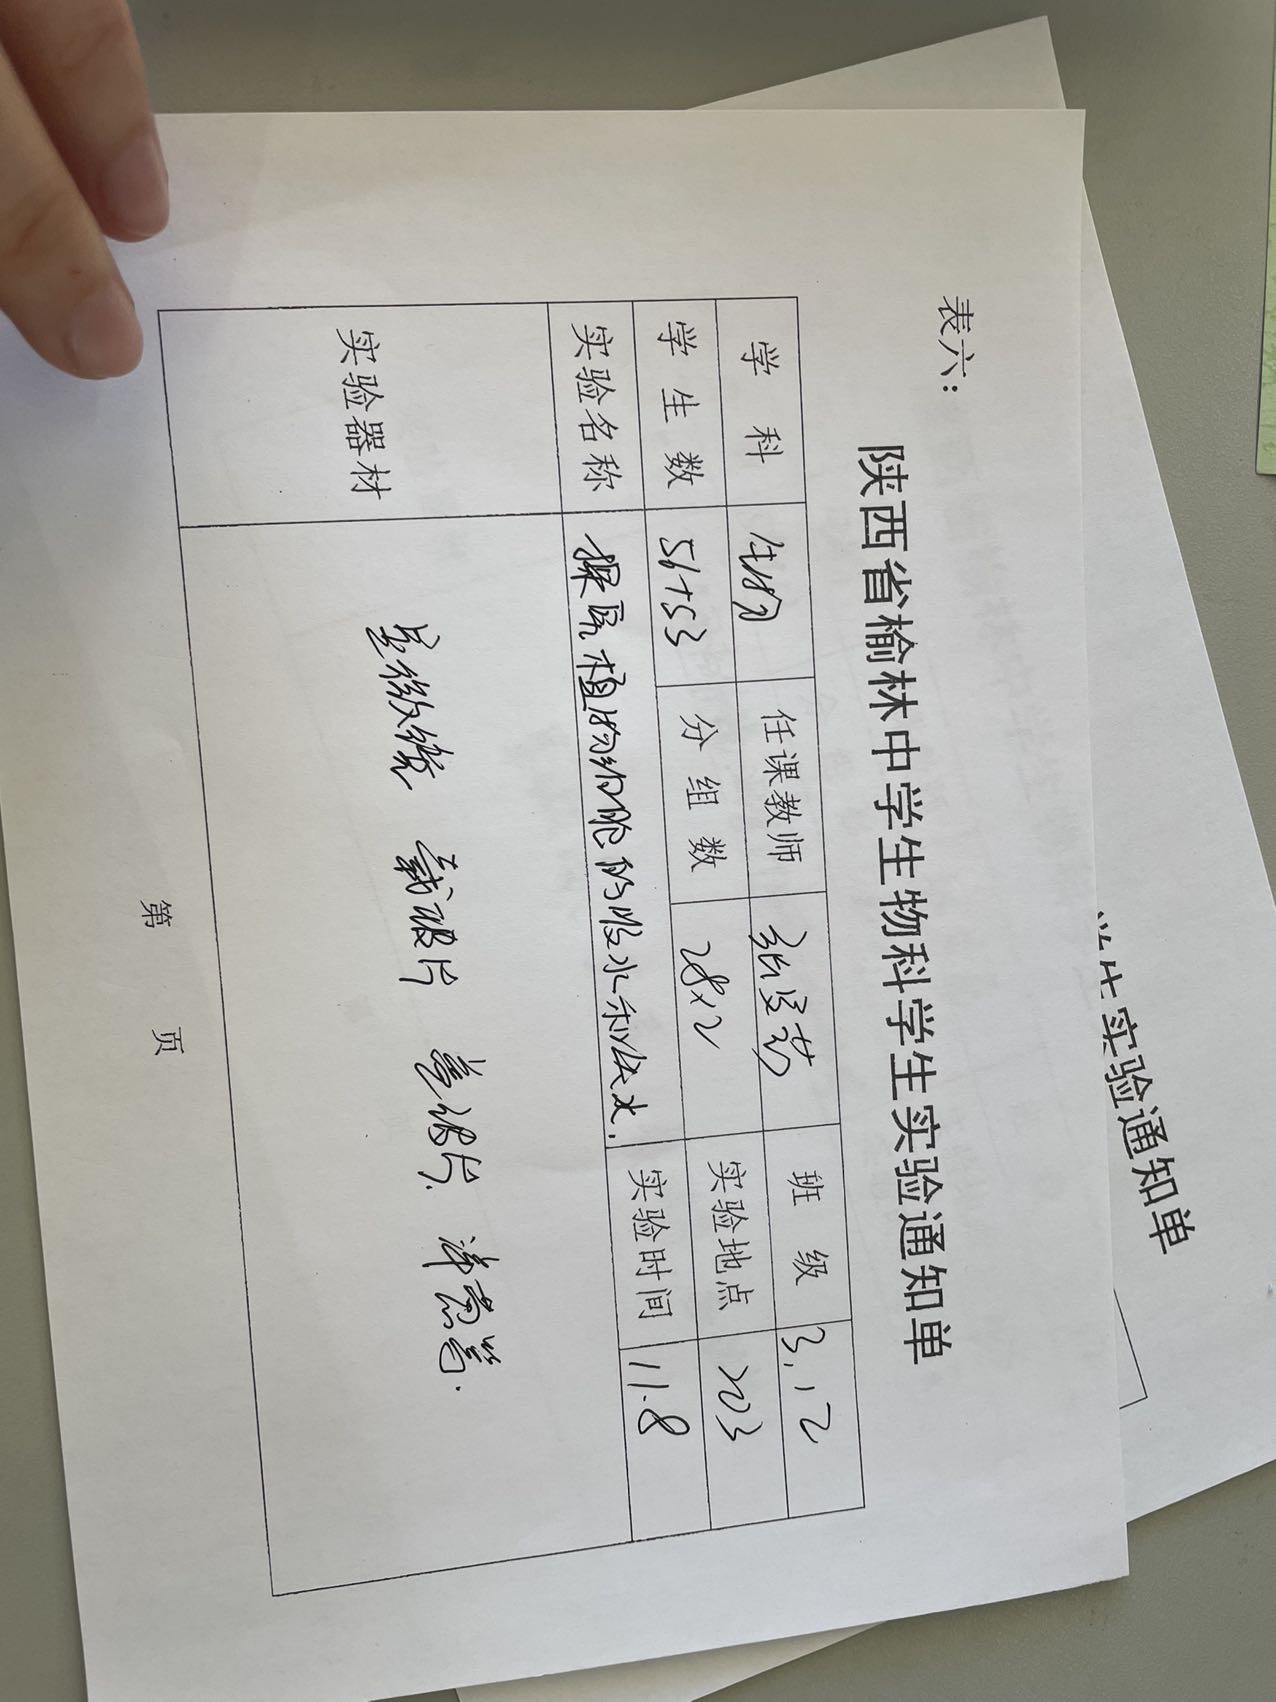 表六：
陕西省榆林中学生物科学生实验通知单
学 科 生物 任课教师 班 级 3,12
学 生 数 56+53 分 组 数 28×2 实验地点 203
实验名称 探究植物细胞的吸水和失水. 实验时间 11.8
实验器材 显微镜 载玻片 盖玻片. 洋葱等.
第 页
学生实验通知单